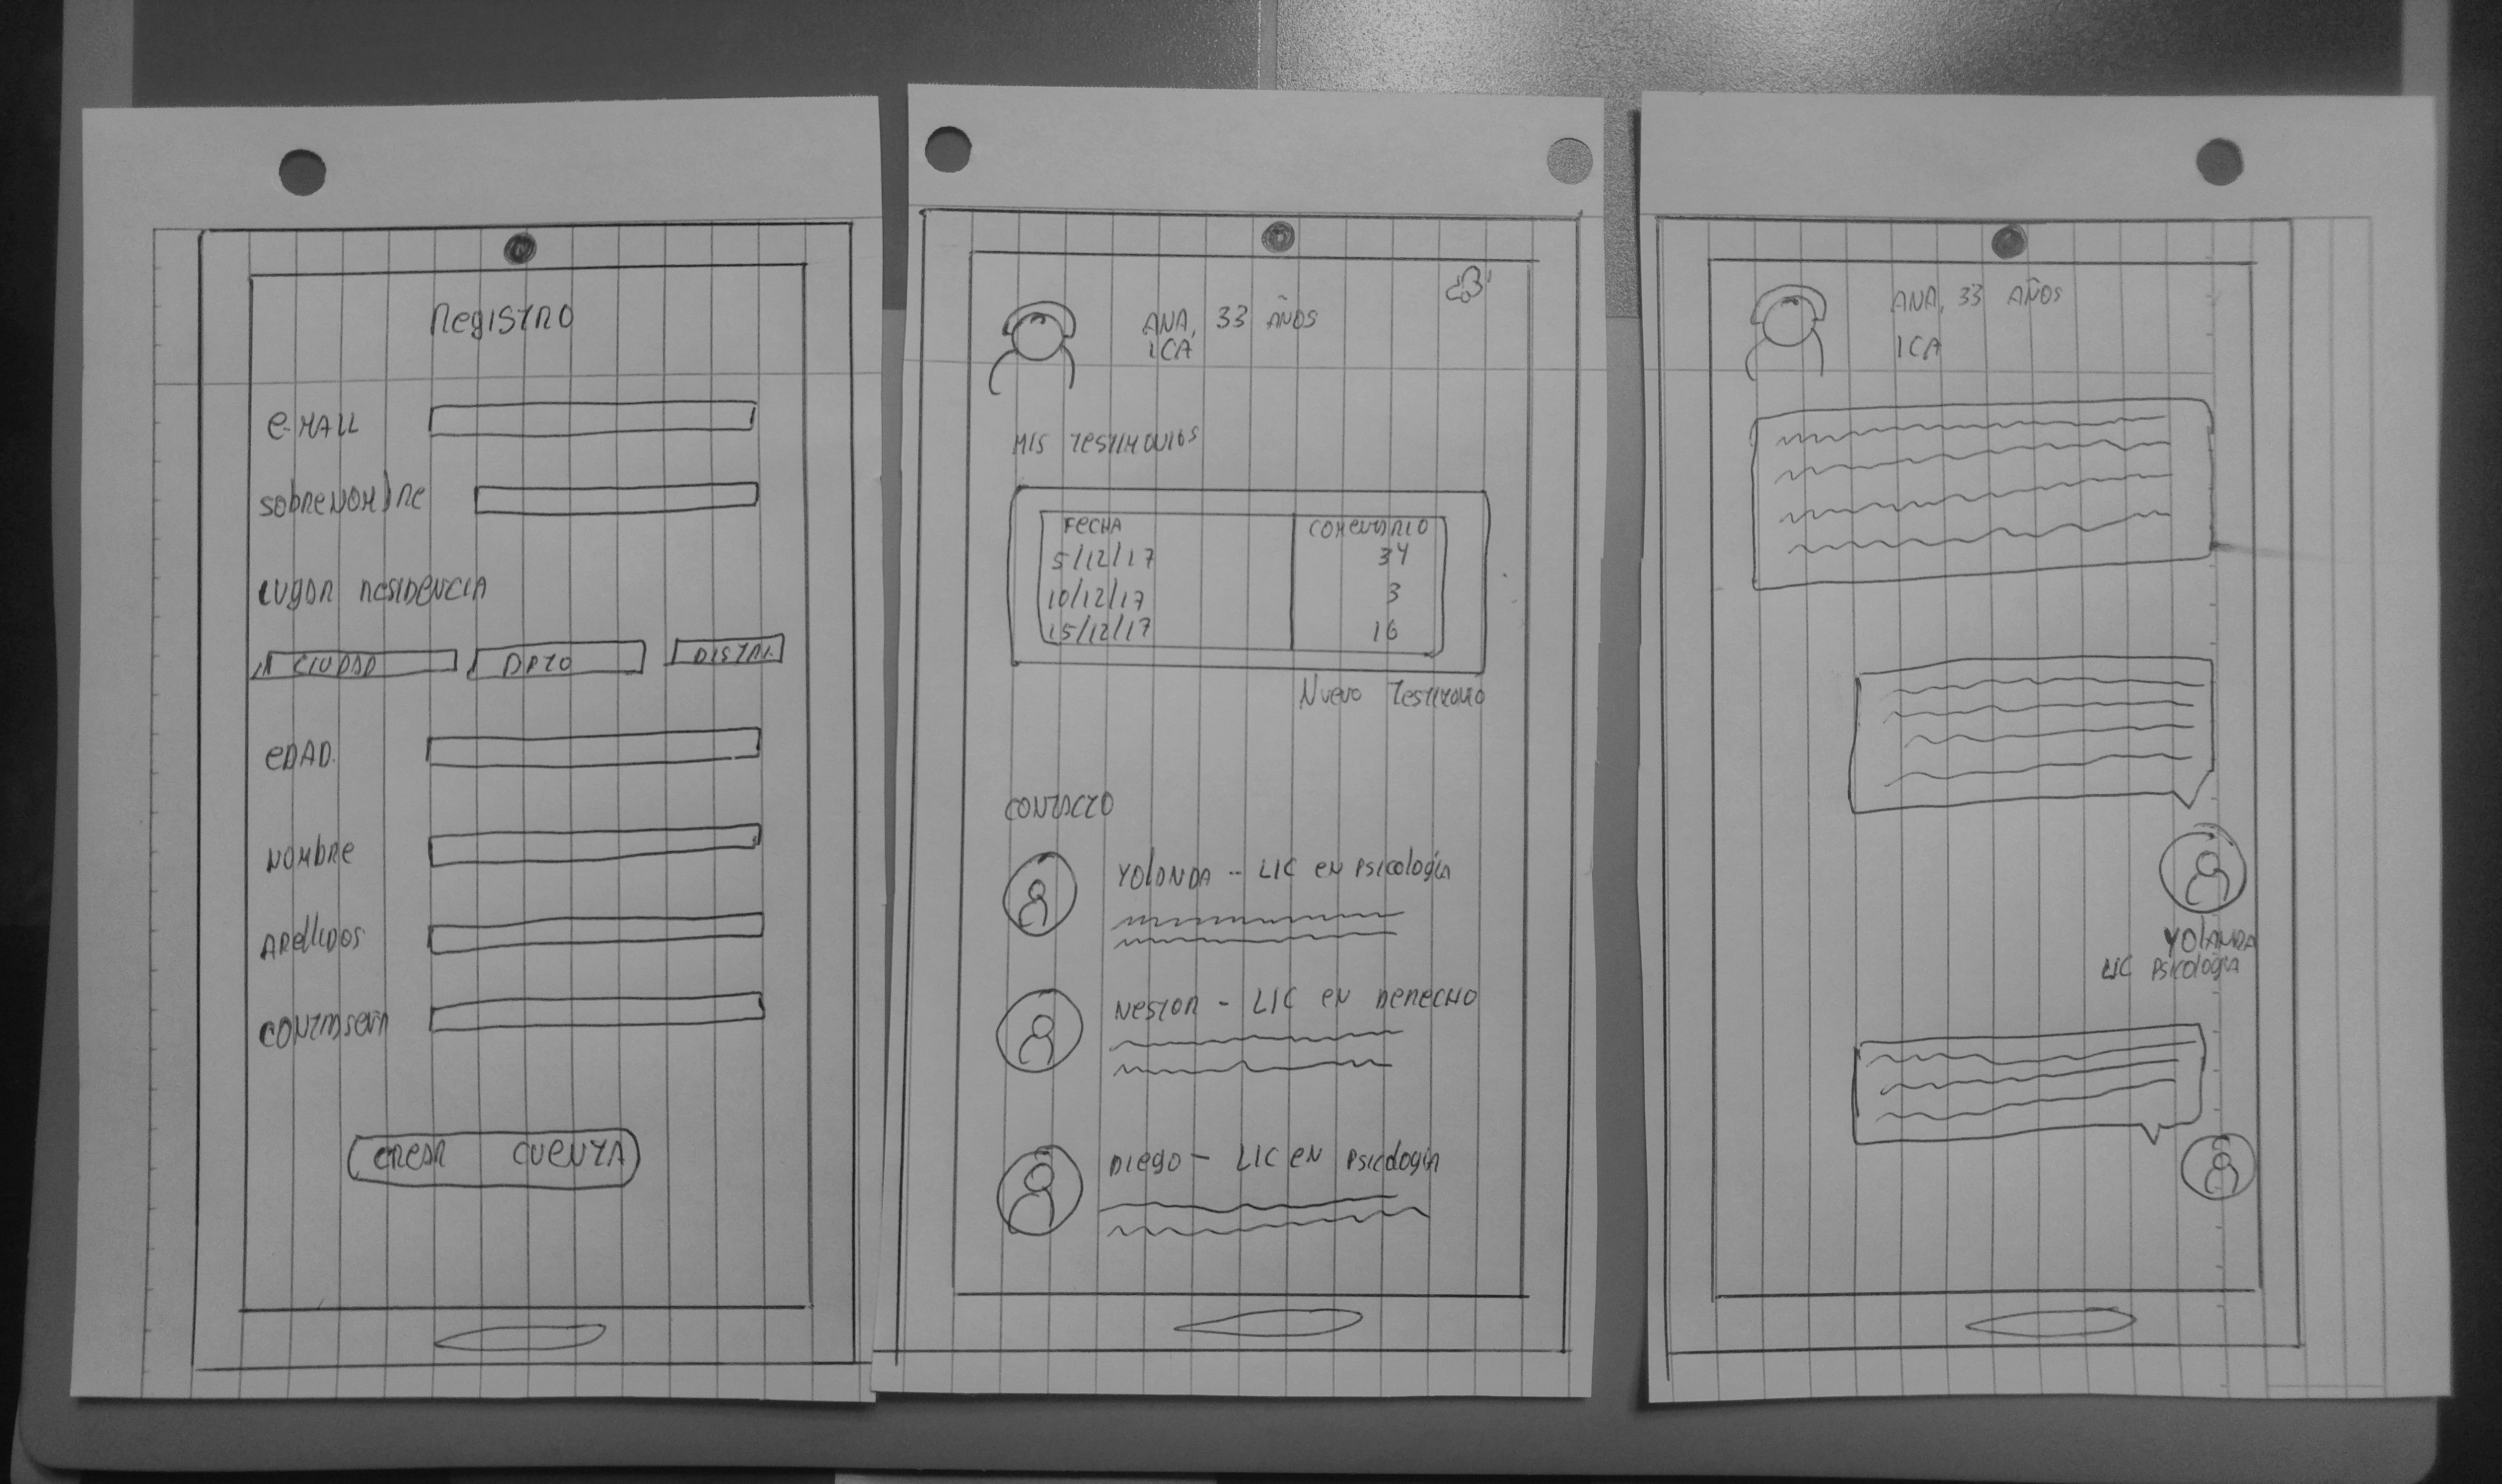 Registro
e-mail
sobrenombre
lugar residencia
ciudad dpto distri.
edad.
nombre
apellidos
contraseña
crear cuenta
ANA, 33 AÑOS
ICA
MIS TESTIMONIOS
FECHA COMENTARIO
5/12/17 34
10/12/17 3
15/12/17 16
Nuevo Testimonio
CONTACTO
YOLANDA -- LIC EN PSICOLOGÍA
NESTOR - LIC EN DERECHO
DIEGO - LIC EN PSICOLOGÍA
ANA, 33 AÑOS
ICA
YOLANDA
LIC PSICOLOGÍA